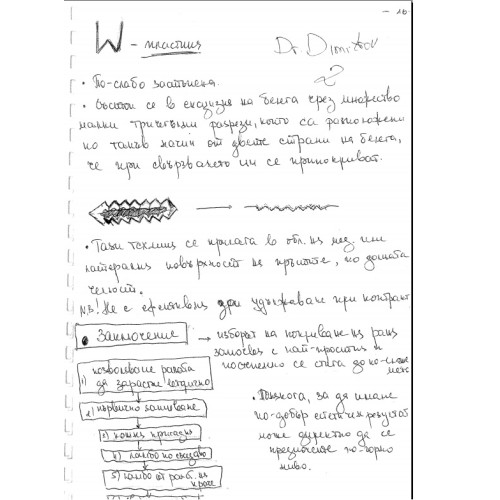 - 16
W - пластика
Dr. Dimitrov
• По-слабо застъпена.
• Състои се в ексцизия на белега чрез множество
малки триъгълни разрези, които са разположени
по такъв начин от двете страни на белега,
че при свързването им се припокриват.
• Тази техника се прилага в обл. на мед. или
латералната повърхност на пръстите, по долната
челюст.
N.B! Не е ефективна при удължаване при контракт
• Заключение → изборът на покриване на рана
започва с най-простия и
постепенно се стига до по-слож
1) позволяване раната
да зарасте вторично
2) първично зашиване
3) кожна присадка
4) ламбо по съседство
5) ламбо от разст. на
• Понякога, за да имаме
по-добър естет. резултат
може директно да се
предпочете по-горно
ниво.